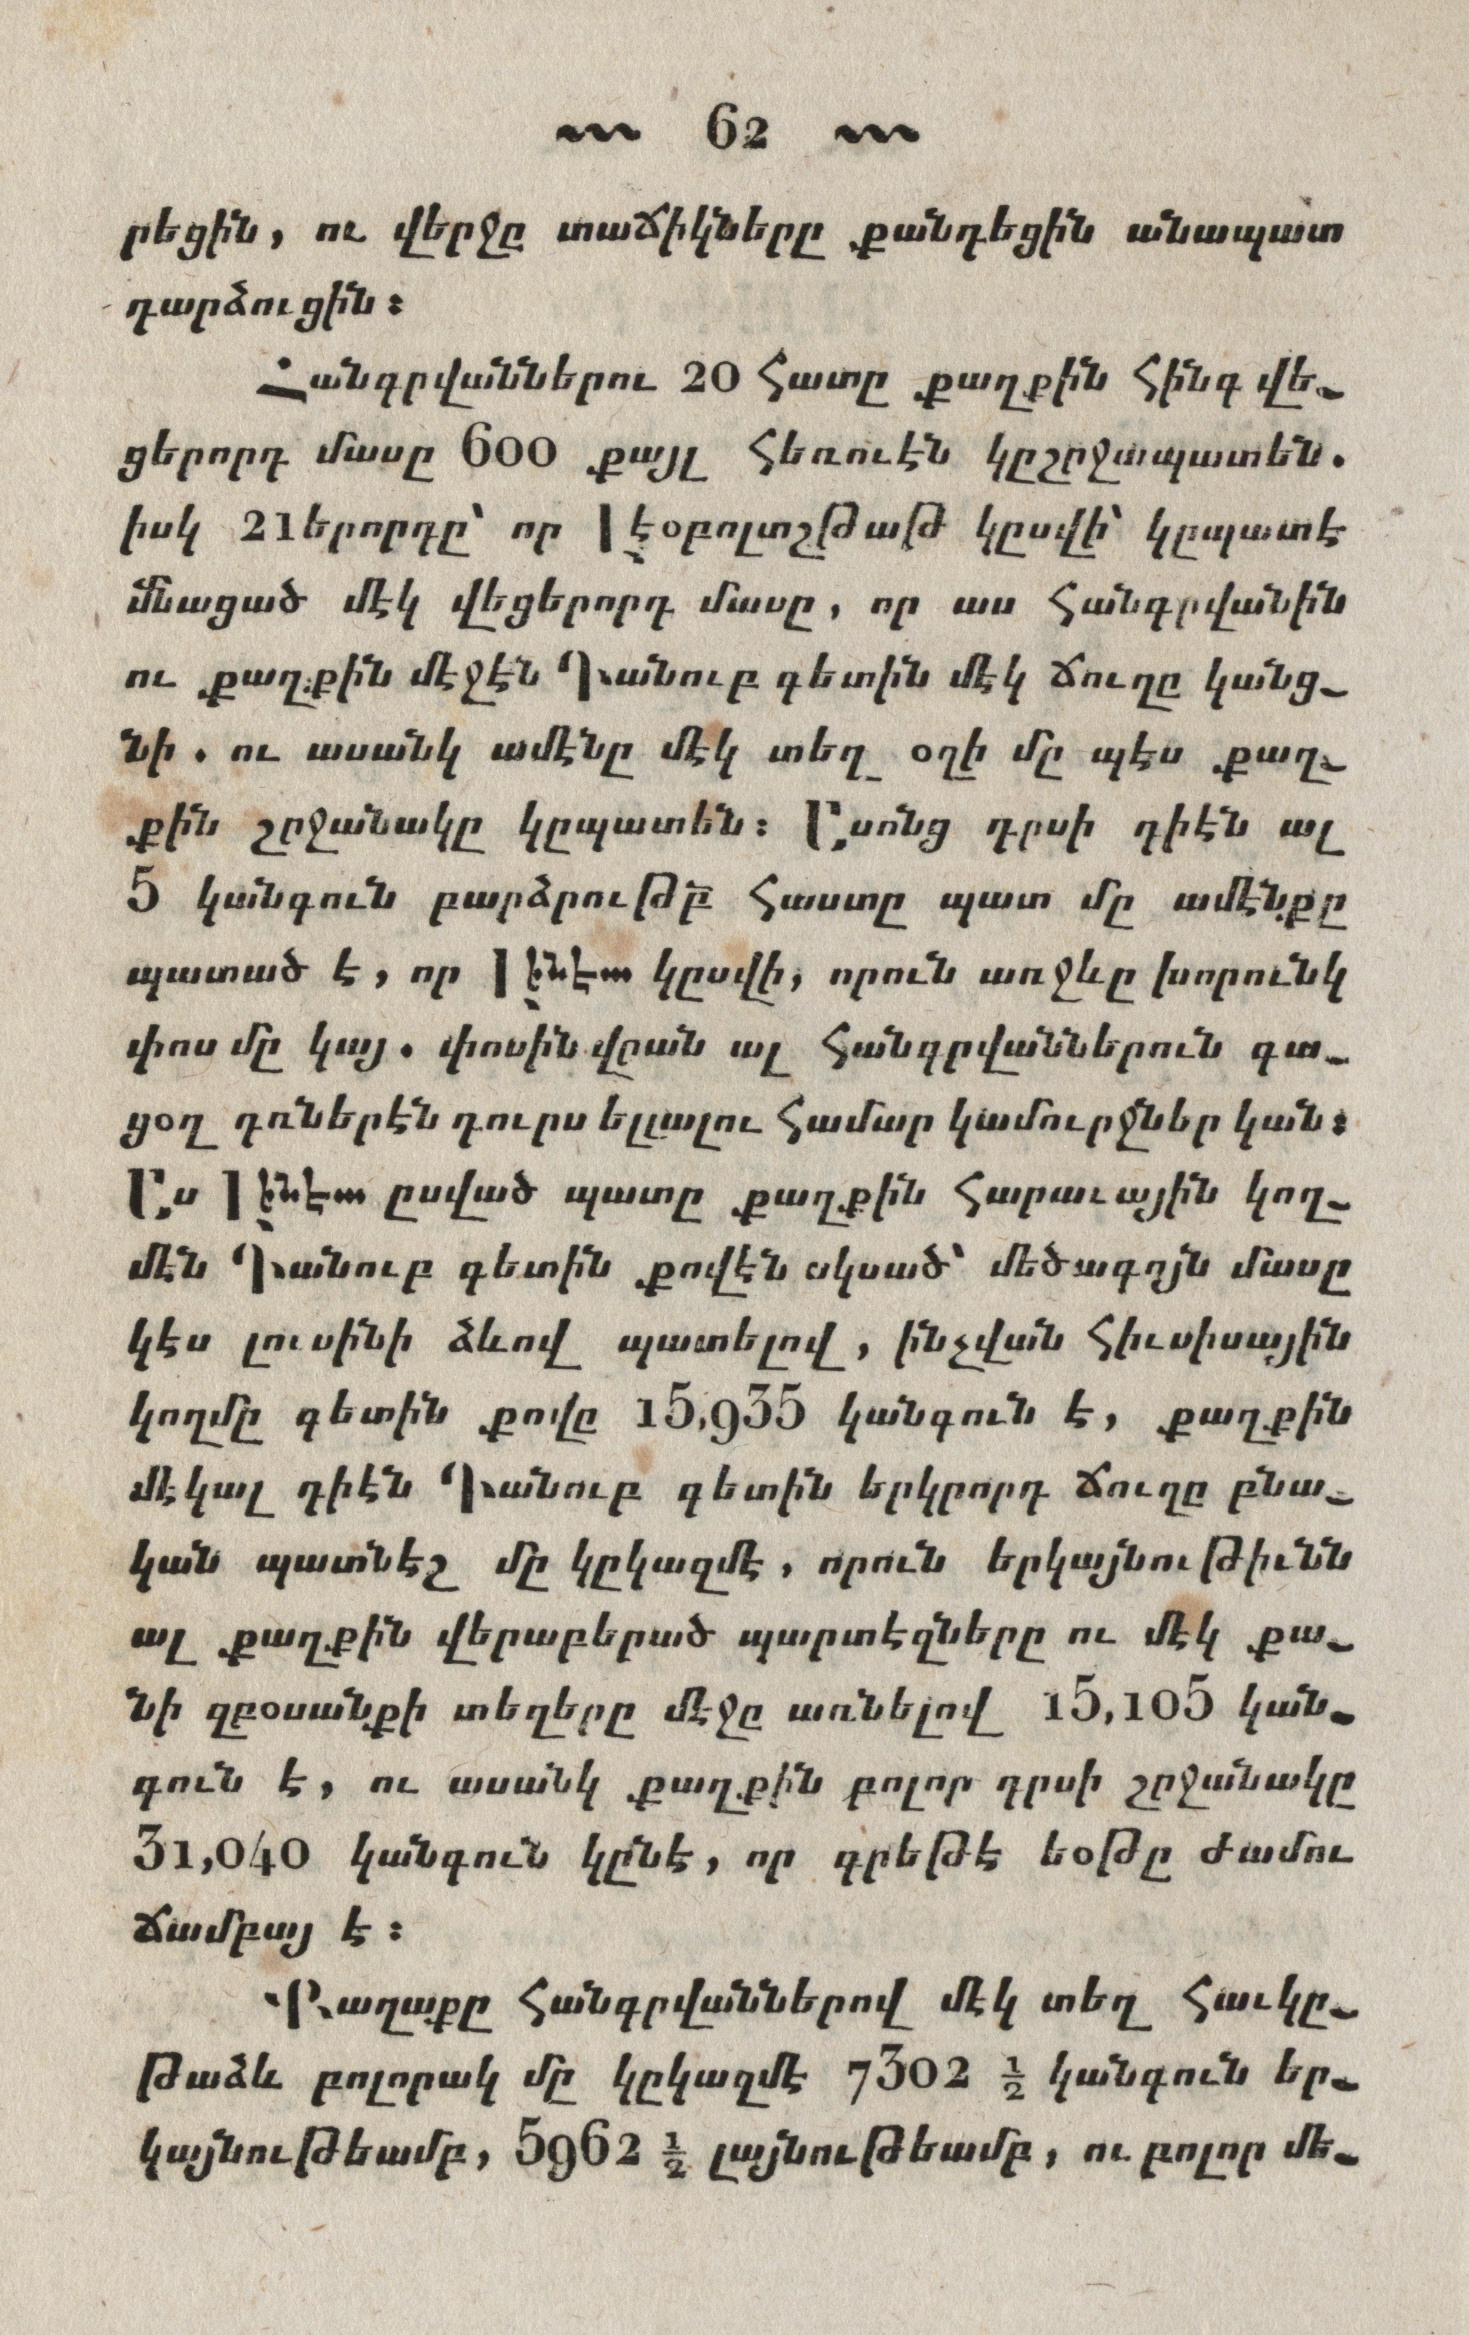 62
րեցին, ու վերջը տաճիկները քանդեցին անապատ
դարձուցին։
Հանգրվաններու 20 հատը քաղքին հինգ վե֊
ցերորդ մասը 600 քայլ հեռուէն կըշրջապատեն.
իսկ 21երորդը՝ որ Լէօբոլտշթաթ կըսվի՝ կըպատէ
մնացած մէկ վեցերորդ մասը, որ աս հանգրվանին
ու քաղքին մէջէն Դանուբ գետին մէկ ճուղը կանց֊
նի. ու ասանկ ամէնը մէկ տեղ օղի մը պէս քաղ֊
քին շրջանակը կըպատեն։ Ըսոնց դրսի դիէն ալ
5 կանգուն բարձրութբ հաստը պատ մը ամէնքը
պատած է, որ Լինէա կըսվի, որուն առջևը խորունկ
փոս մը կայ. փոսին վրան ալ հանգրվաններուն գա֊
ցօղ դռներէն դուրս ելլալու համար կամուրջներ կան։
Աս Լինէա ըսված պատը քաղքին հարաւային կող֊
մէն Դանուբ գետին քովէն սկսած՝ մեծագոյն մասը
կէս լուսինի ձևով պատելով, ինչվան հիւսիսային
կողմը գետին քովը 15,935 կանգուն է, քաղքին
մէկալ դիէն Դանուբ գետին երկրորդ ճուղը բնա֊
կան պատնէշ մը կըկազմէ, որուն երկայնութիւնն
ալ քաղքին վերաբերած պարտէզները ու մէկ քա֊
նի զբօսանքի տեղերը մէջը առնելով 15,105 կան֊
գուն է, ու ասանկ քաղքին բոլոր դրսի շրջանակը
31,040 կանգուն կընէ, որ գրեթէ եօթը ժամու
ճամբայ է։
Քաղաքը հանգրվաններով մէկ տեղ հաւկը֊
թաձև բոլորակ մը կըկազմէ 7302 ½ կանգուն եր֊
կայնութեամբ, 5962 ½ լայնութեամբ, ու բոլոր մե֊